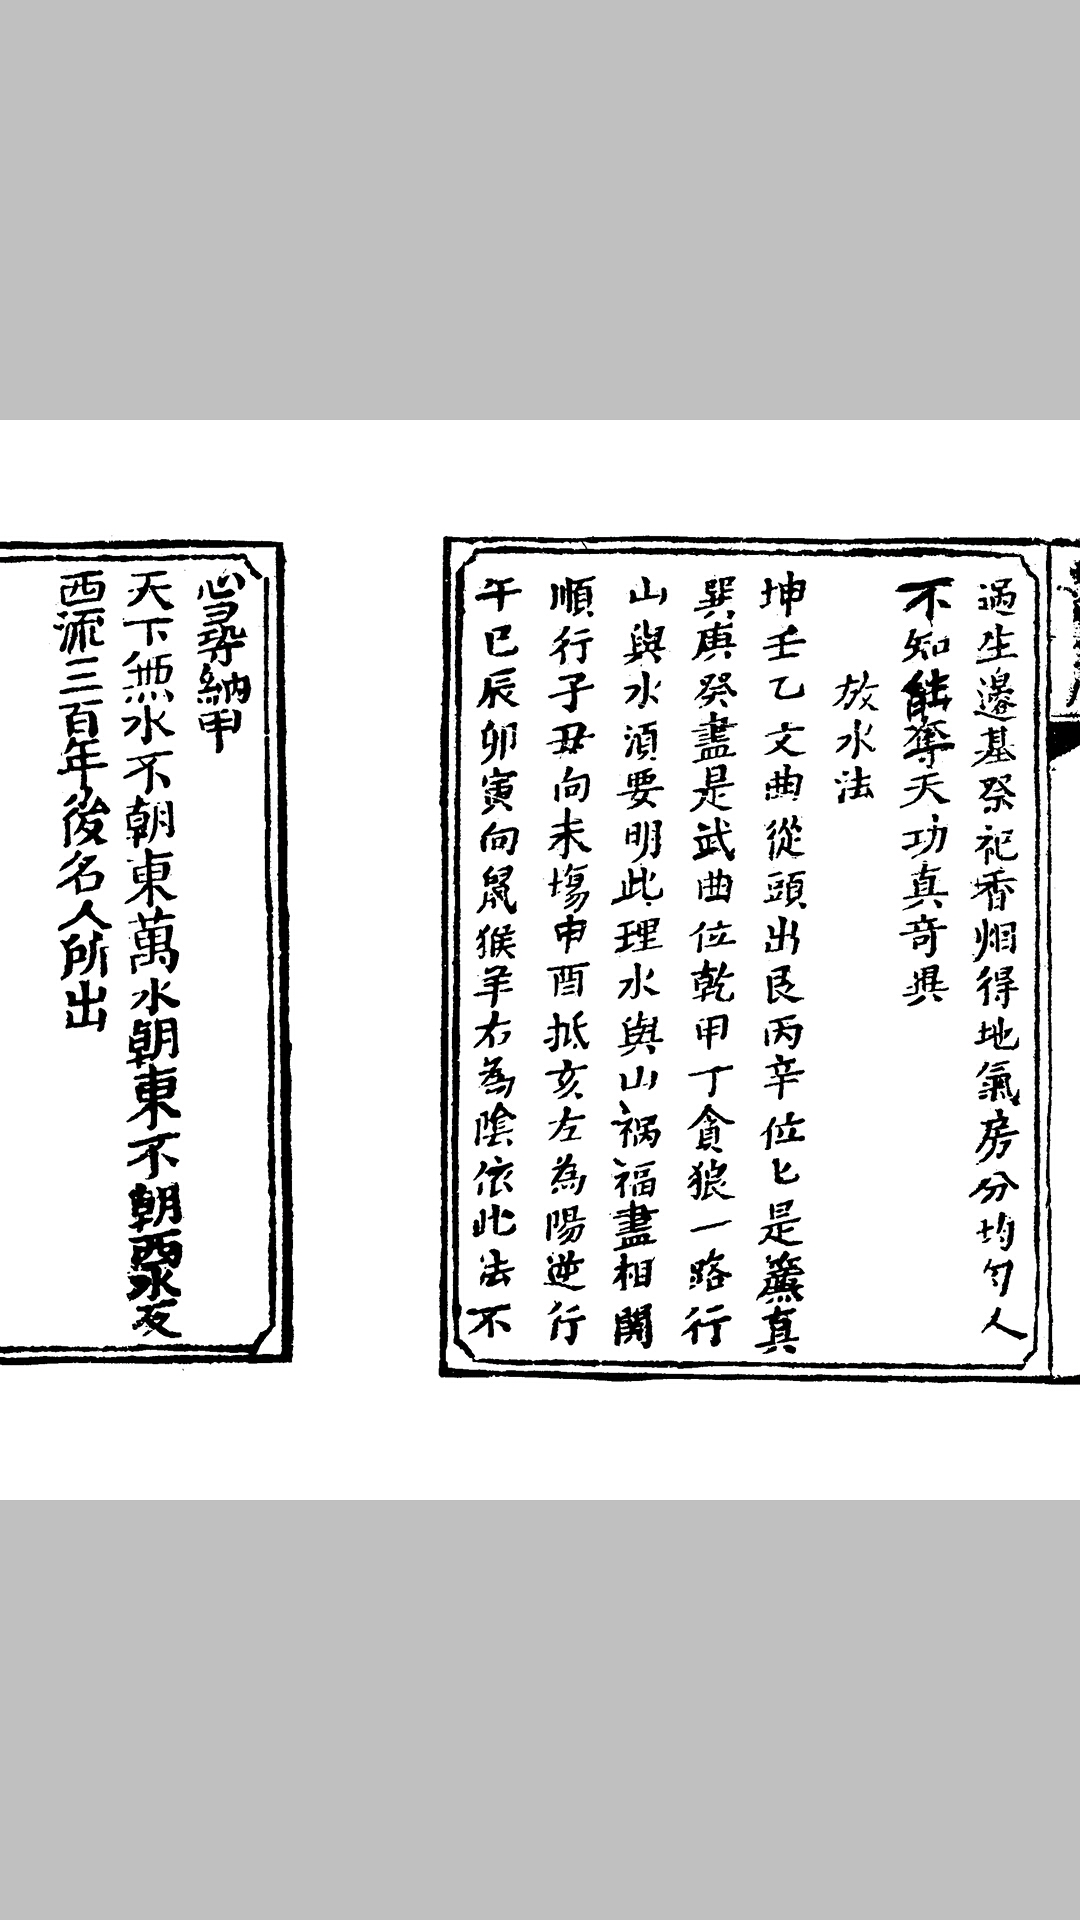 過生邉基祭祀香烟得地氣房分均匀人
不知能奪天功真奇異
放水法
坤壬乙文曲從頭出艮丙辛位位是廉真
巽庚癸盡是武曲位乾甲丁貪狼一路行
山與水須要明此理水與山禍福盡相関
順行子丑向未塲申酉抵亥左為陽逆行
午巳辰卯寅向鼠猴羊右為陰依此法不
心尋納甲
天下無水不朝東萬水朝東不朝西水反
西流三百年後名人所出